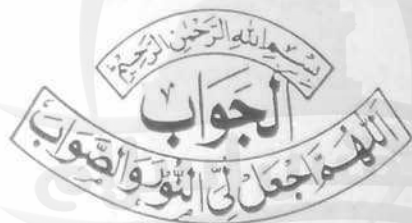 بِسْمِ اللهِ الرَّحْمٰنِ الرَّحِيْمِ
الجَوَاب
اَللّٰهُمَّ اجْعَلْ لِّيَ النُّوْرَ وَالصَّوَابَ